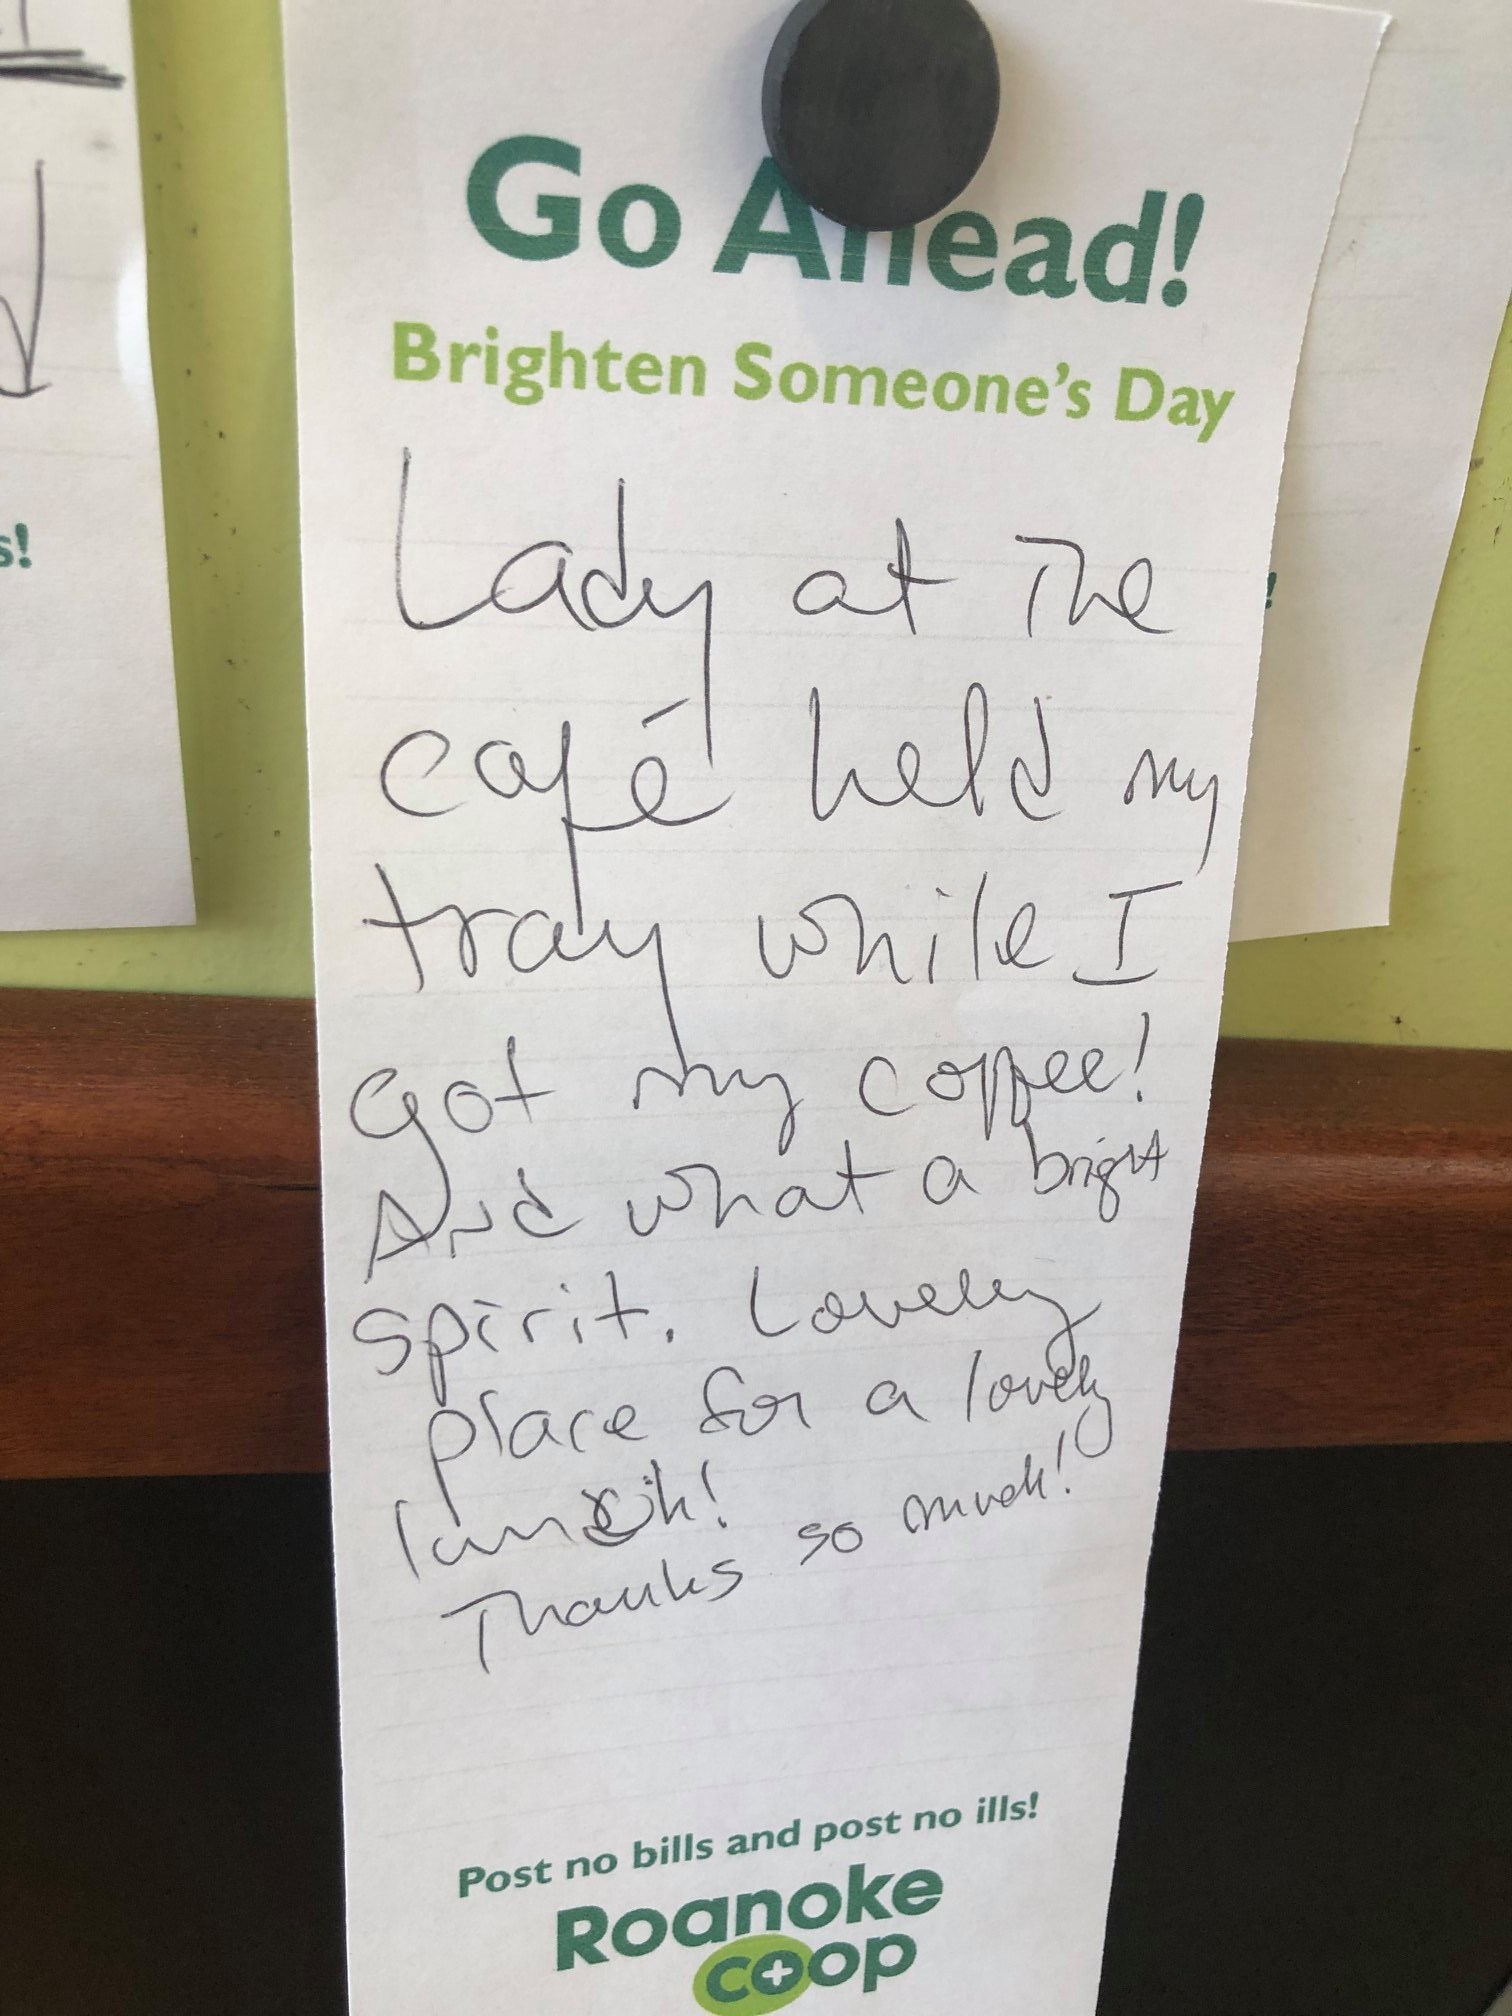 Go Ahead!
Brighten Someone's Day
Lady at the
café held my
tray while I
got my coffee!
And what a bright
spirit. Lovely
place for a lovely
lunch!
Thanks so much!
Post no bills and post no ills!
Roanoke
coop
s!
!